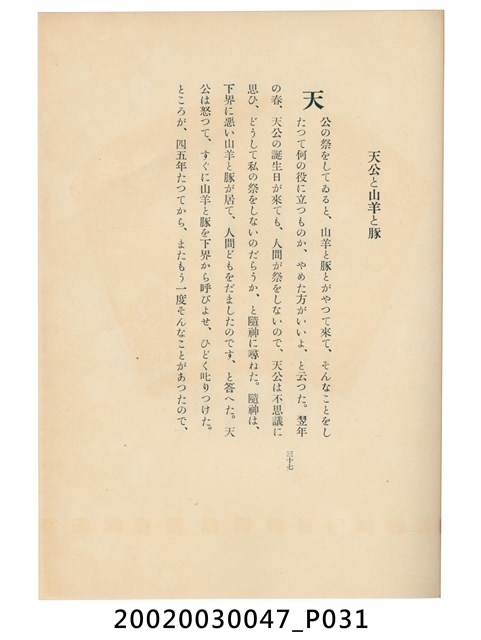 天公と山羊と豚
天公の祭をしてゐると、山羊と豚とがやつて来て、そんなことをし
たつて何の役に立つものか、やめた方がいいよ、と云つた。翌年
の春、天公の誕生日が来ても、人間が祭をしないので、天公は不思議に
思ひ、どうして私の祭をしないのだらうか、と隨神に尋ねた。隨神は、
下界に悪い山羊と豚が居て、人間どもをだましたのです、と答へた。天
公は怒つて、すぐに山羊と豚を下界から呼びよせ、ひどく叱りつけた。
ところが、四五年たつてから、またもう一度そんなことがあつたので、
三十七
20020030047_P031